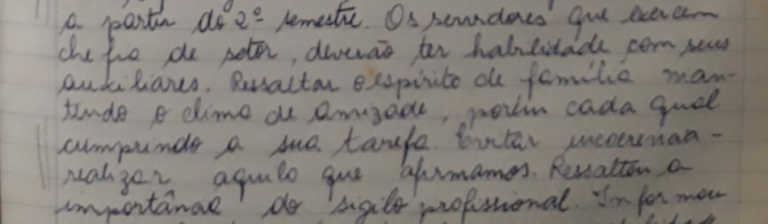 a partir do 2º semestre. Os servidores que exercem
chefia de setor, deverão ter habilidade com seus
auxiliares. Ressaltar o espírito de família man-
tendo o clima de amizade, porém cada qual
cumprindo a sua tarefa. Evitar incoerencia -
realizar aquilo que afirmamos. Ressaltou a
importância do sigilo profissional. Informou